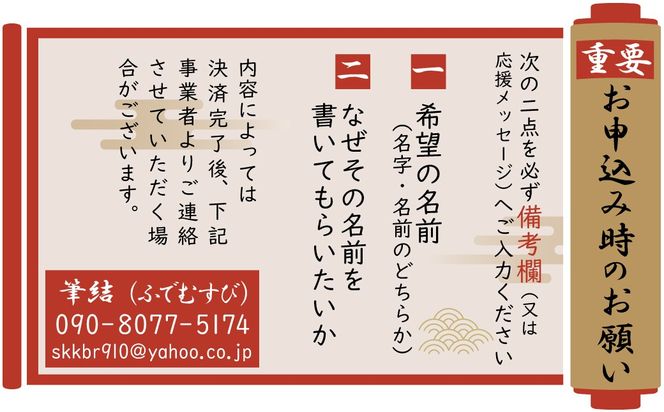 重要
お申込み時のお願い
次の二点を必ず備考欄(又は
応援メッセージ)へご入力ください
一
希望の名前
(名字・名前のどちらか)
二
なぜその名前を
書いてもらいたいか
内容によっては
決済完了後、下記
事業者よりご連絡
させていただく場
合がございます。
筆結(ふでむすび)
090-8077-5174
skkbr910@yahoo.co.jp